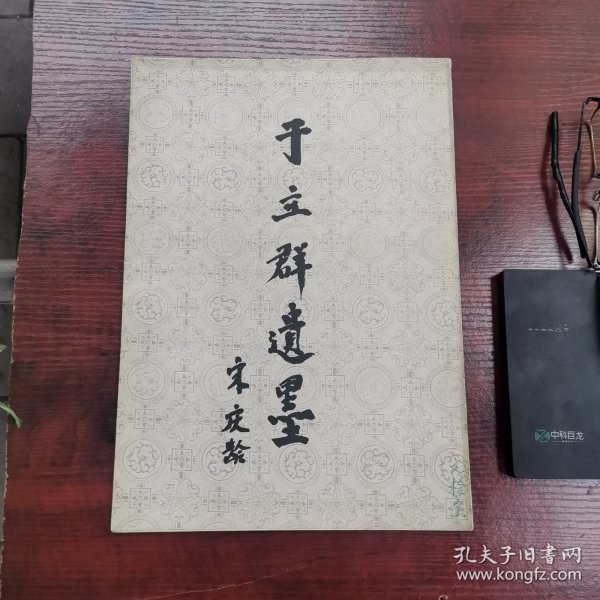 于立群遺墨
宋庆龄
中科巨龙
孔夫子旧书网
www.kongfz.com